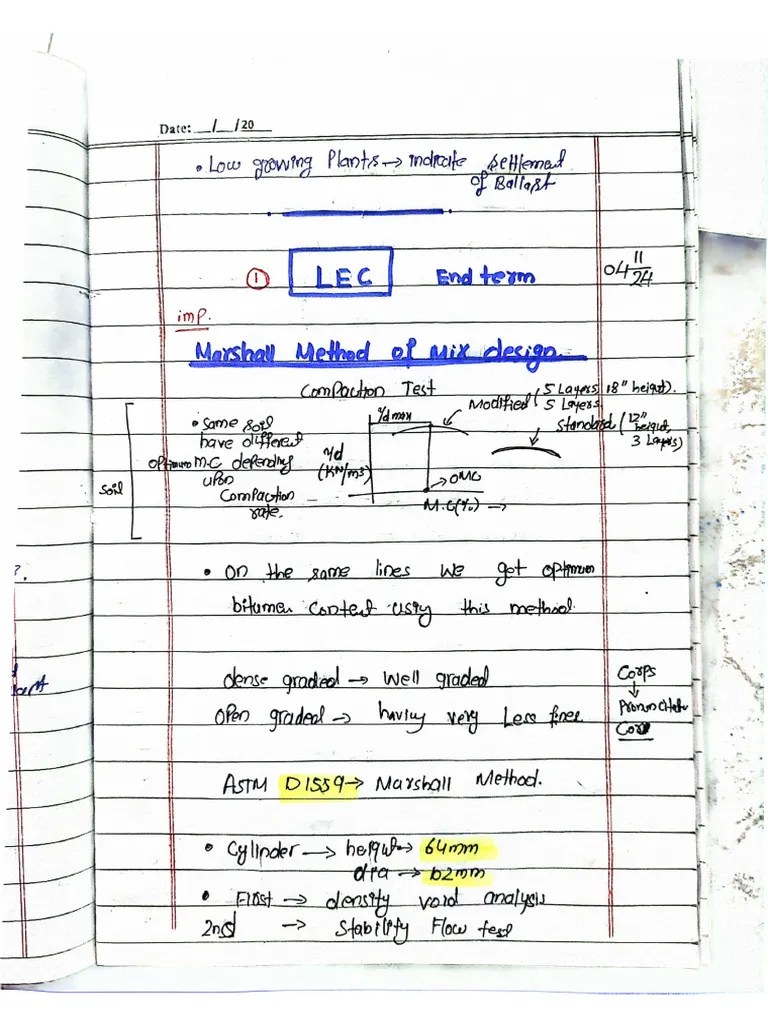 Date: __/__/20__
• Low growing Plants → indicate settlement
of Ballast
① LEC End term 04 11/24
imp.
Marshall Method of Mix design
Compaction Test
• same soil
have different
optimum M.C depending
upon
Compaction
rate.
soil
γd max
γd
(KN/m3)
OMC
M.C(%) →
Modified (5 Layers, 18" height).
5 Layers
standard (12"
height,
3 Layers)
• On the same lines we get optimum
bitumen content using this method.
dense graded → well graded
Open graded → having very Less fines.
Corps
↓
Cor
ASTM D1559 → Marshall Method.
• Cylinder → height → 64mm
dia → 102mm
• First → density void analysis
2nd → Stability Flow test
?.